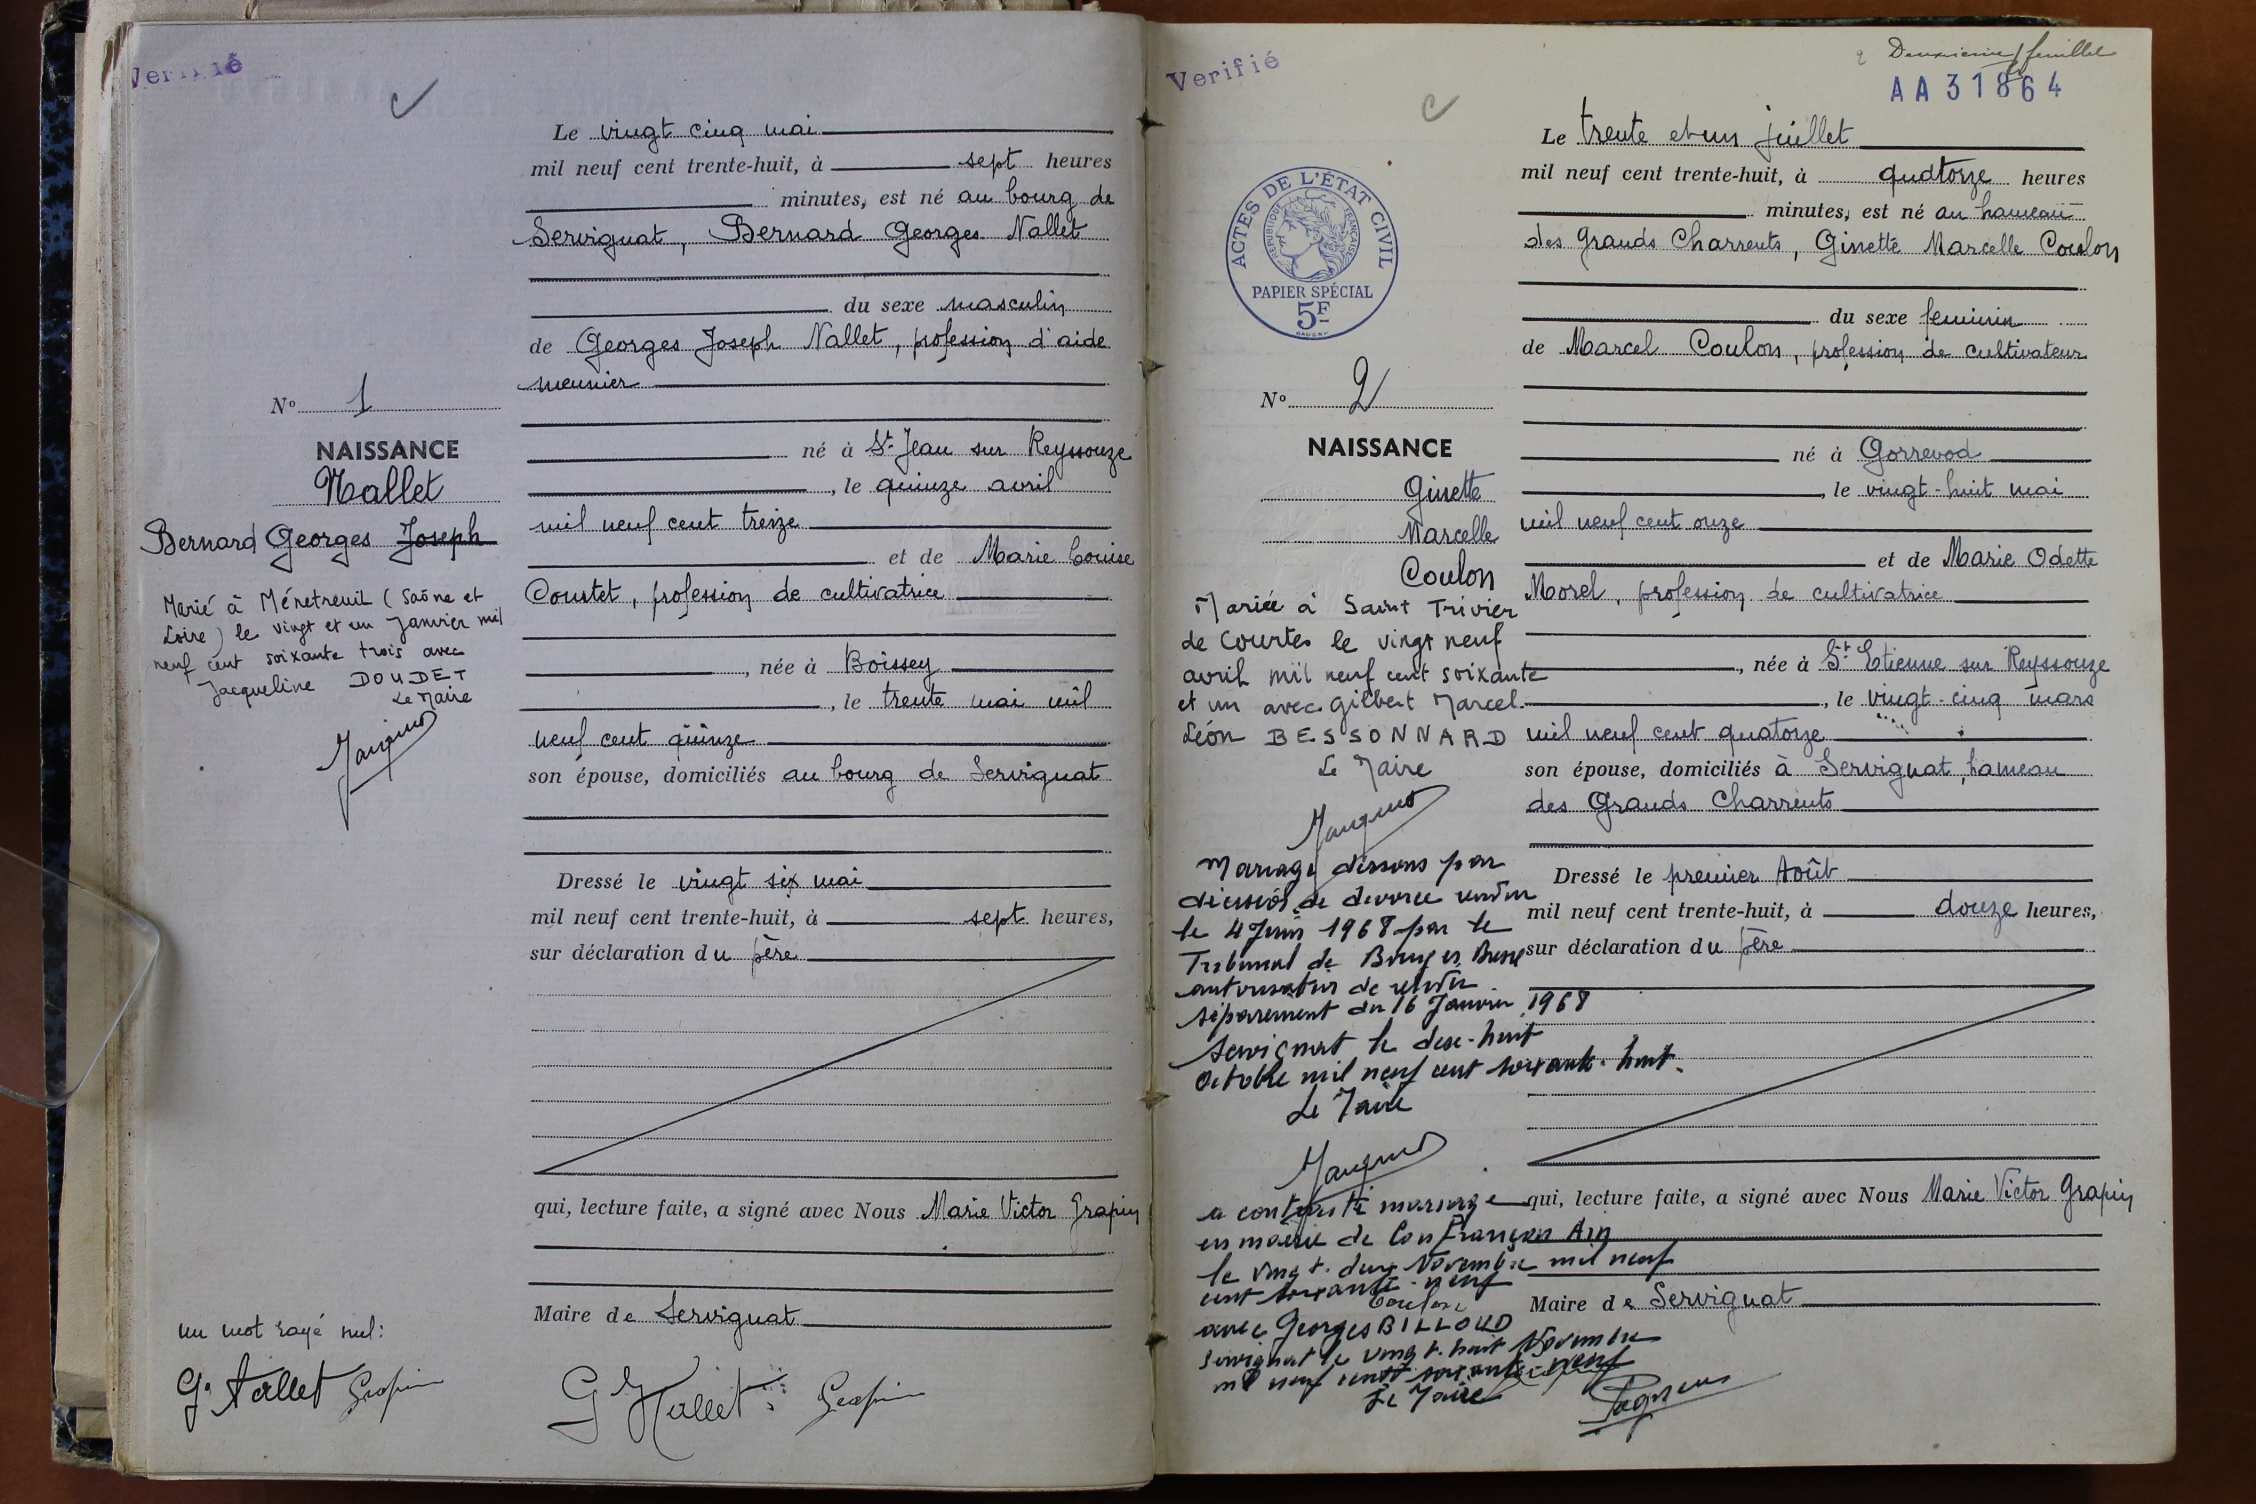 Verifié
Le vingt cinq mai
mil neuf cent trente-huit, à sept heures
minutes, est né au bourg de
Servignat, Bernard Georges Nallet
du sexe masculin
de Georges Joseph Nallet, profession d'aide
meunier
né à St Jean sur Reyssouze
, le quinze avril
mil neuf cent treize
et de Marie Louise
Coustet, profession de cultivatrice
, née à Boissey
, le trente mai mil
neuf cent quinze
son épouse, domiciliés au bourg de Servignat
Dressé le vingt six mai
mil neuf cent trente-huit, à sept heures,
sur déclaration du père
qui, lecture faite, a signé avec Nous Marie Victor Grapin
Maire de Servignat
G Nallet Grapin
No 1
NAISSANCE
Nallet
Bernard Georges Joseph
Marié à Ménetreuil (Saône et
Loire) le vingt et un Janvier mil
neuf cent soixante trois avec
Jacqueline DOUDET
Le Maire
un mot rayé nul:
G. Nallet Grapin
Verifié
Deuxième feuillet
AA31864
ACTES DE L'ÉTAT CIVIL
RÉPUBLIQUE FRANÇAISE
PAPIER SPÉCIAL
5F
No 2
NAISSANCE
Ginette
Marcelle
Coulon
Mariée à Saint Trivier
de Courtes le vingt neuf
avril mil neuf cent soixante
et un avec Gilbert Marcel
Léon BESSONNARD
Le Maire
Mariage dissous par
décision de divorce rendu
le 4 Juin 1968 par le
Tribunal de Bourg en Bresse
autorisation de résider
séparement du 16 Janvier 1968
Servignat le dix-huit
Octobre mil neuf cent soixante-huit.
Le Maire
a contracté mariage
en mairie de Confrançon Ain
le vingt-deux Novembre mil neuf
cent soixante-neuf
avec Georges BILLOUD
Servignat le vingt-huit Novembre
mil neuf cent soixante-neuf
Le Maire
Le trente et un juillet
mil neuf cent trente-huit, à quatorze heures
minutes, est né au hameau
des Grands Charrents, Ginette Marcelle Coulon
du sexe feminin
de Marcel Coulon, profession de cultivateur
né à Gorrevod
, le vingt-huit mai
mil neuf cent onze
et de Marie Odette
Morel, profession de cultivatrice
, née à St Etienne sur Reyssouze
, le vingt-cinq mars
mil neuf cent quatorze
son épouse, domiciliés à Servignat, hameau
des Grands Charrents
Dressé le premier Août
mil neuf cent trente-huit, à douze heures,
sur déclaration du père
qui, lecture faite, a signé avec Nous Marie Victor Grapin
Maire de Servignat